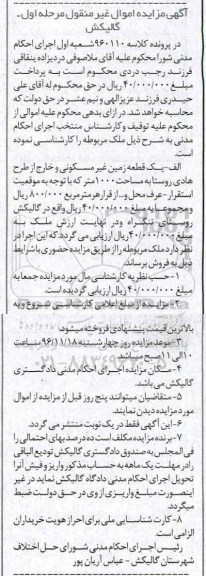 آگهی مزایده اموال غیر منقول مرحله اول-
گالیکش
در پرونده کلاسه ۹۶۰۱۱۰ شعبه اول اجرای احکام
مدنی شورا محکوم علیه آقای ملاصوفی دردیزاده ینقاقی
فرزند رجب دردی محکوم است به پرداخت
مبلغ ۴۰/۰۰۰/۰۰۰ ریال در حق محکوم له آقای علی
حیدری فرزند عزیزالهی و نیم عشر در حق دولت که
محاسبه خواهد شد. در ازای بدهی محکوم علیه اموالی از
محکوم علیه توقیف و کارشناس منتخب اجرای احکام
مدنی به شرح ذیل ملک مربوطه را کارشناسی نموده
است.
الف-یک قطعه زمین غیر مسکونی و خارج از طرح
هادی روستا به مساحت ۱۰۰۰ متر که با توجه به موقعیت
استقرار-عرف محل و.. از قرار هر متر مربع ۸۰۰/۰۰۰ ریال
و مجموعا به مبلغ ۴۰/۰۰۰/۰۰۰ ریال واقع در گالیکش
روستای تنگراه و در نهایت ارزش ملک به
مبلغ ۴۰/۰۰۰/۰۰۰ ریال ارزیابی می گردد که این اجرا در
نظر دارد ملک مربوطه را از طریق مزایده حضوری با شرایط
ذیل به فروش برساند.
۱-حسب نظریه کارشناسی مال مورد مزایده جمعا به
مبلغ ۴۰/۰۰۰/۰۰۰ ریال ارزیابی گردیده است.
۲-مزایده از مبلغ اعلامی کارشناسی شروع و به
بالاترین قیمت پیشنهادی فروخته میشود.
۳-موعد مزایده روز چهارشنبه ۹۶/۱۱/۱۸ ساعت
۱۰ الی ۱۱ صبح میباشد.
۴-مکان مزایده اجرای احکام مدنی دادگستری
گالیکش می باشد.
۵-متقاضیان میتوانند پنج روز قبل از مزایده از اموال
مورد مزایده دیدن نمایند.
۶-این آگهی فقط در یک نوبت منتشر می گردد.
۷-برنده مزایده مکلف است ده درصد بهای احتمالی را
فی المجلس به صندوق دادگستری گالیکش تودیع الباقی
را در مهلت یک ماهه به حساب مذکور واریز و فیش آنرا
تحویل اجرای احکام مدنی دادگاه گالیکش نماید در غیر
اینصورت مبلغ واریزی از وی در حق دولت ضبط
میگردد.
۸-کارت شناسایی ملی برای احراز هویت خریداران
الزامی است.
رئیس اجرای احکام مدنی شورای حل اختلاف
شهرستان گالیکش - عباس آریان پور